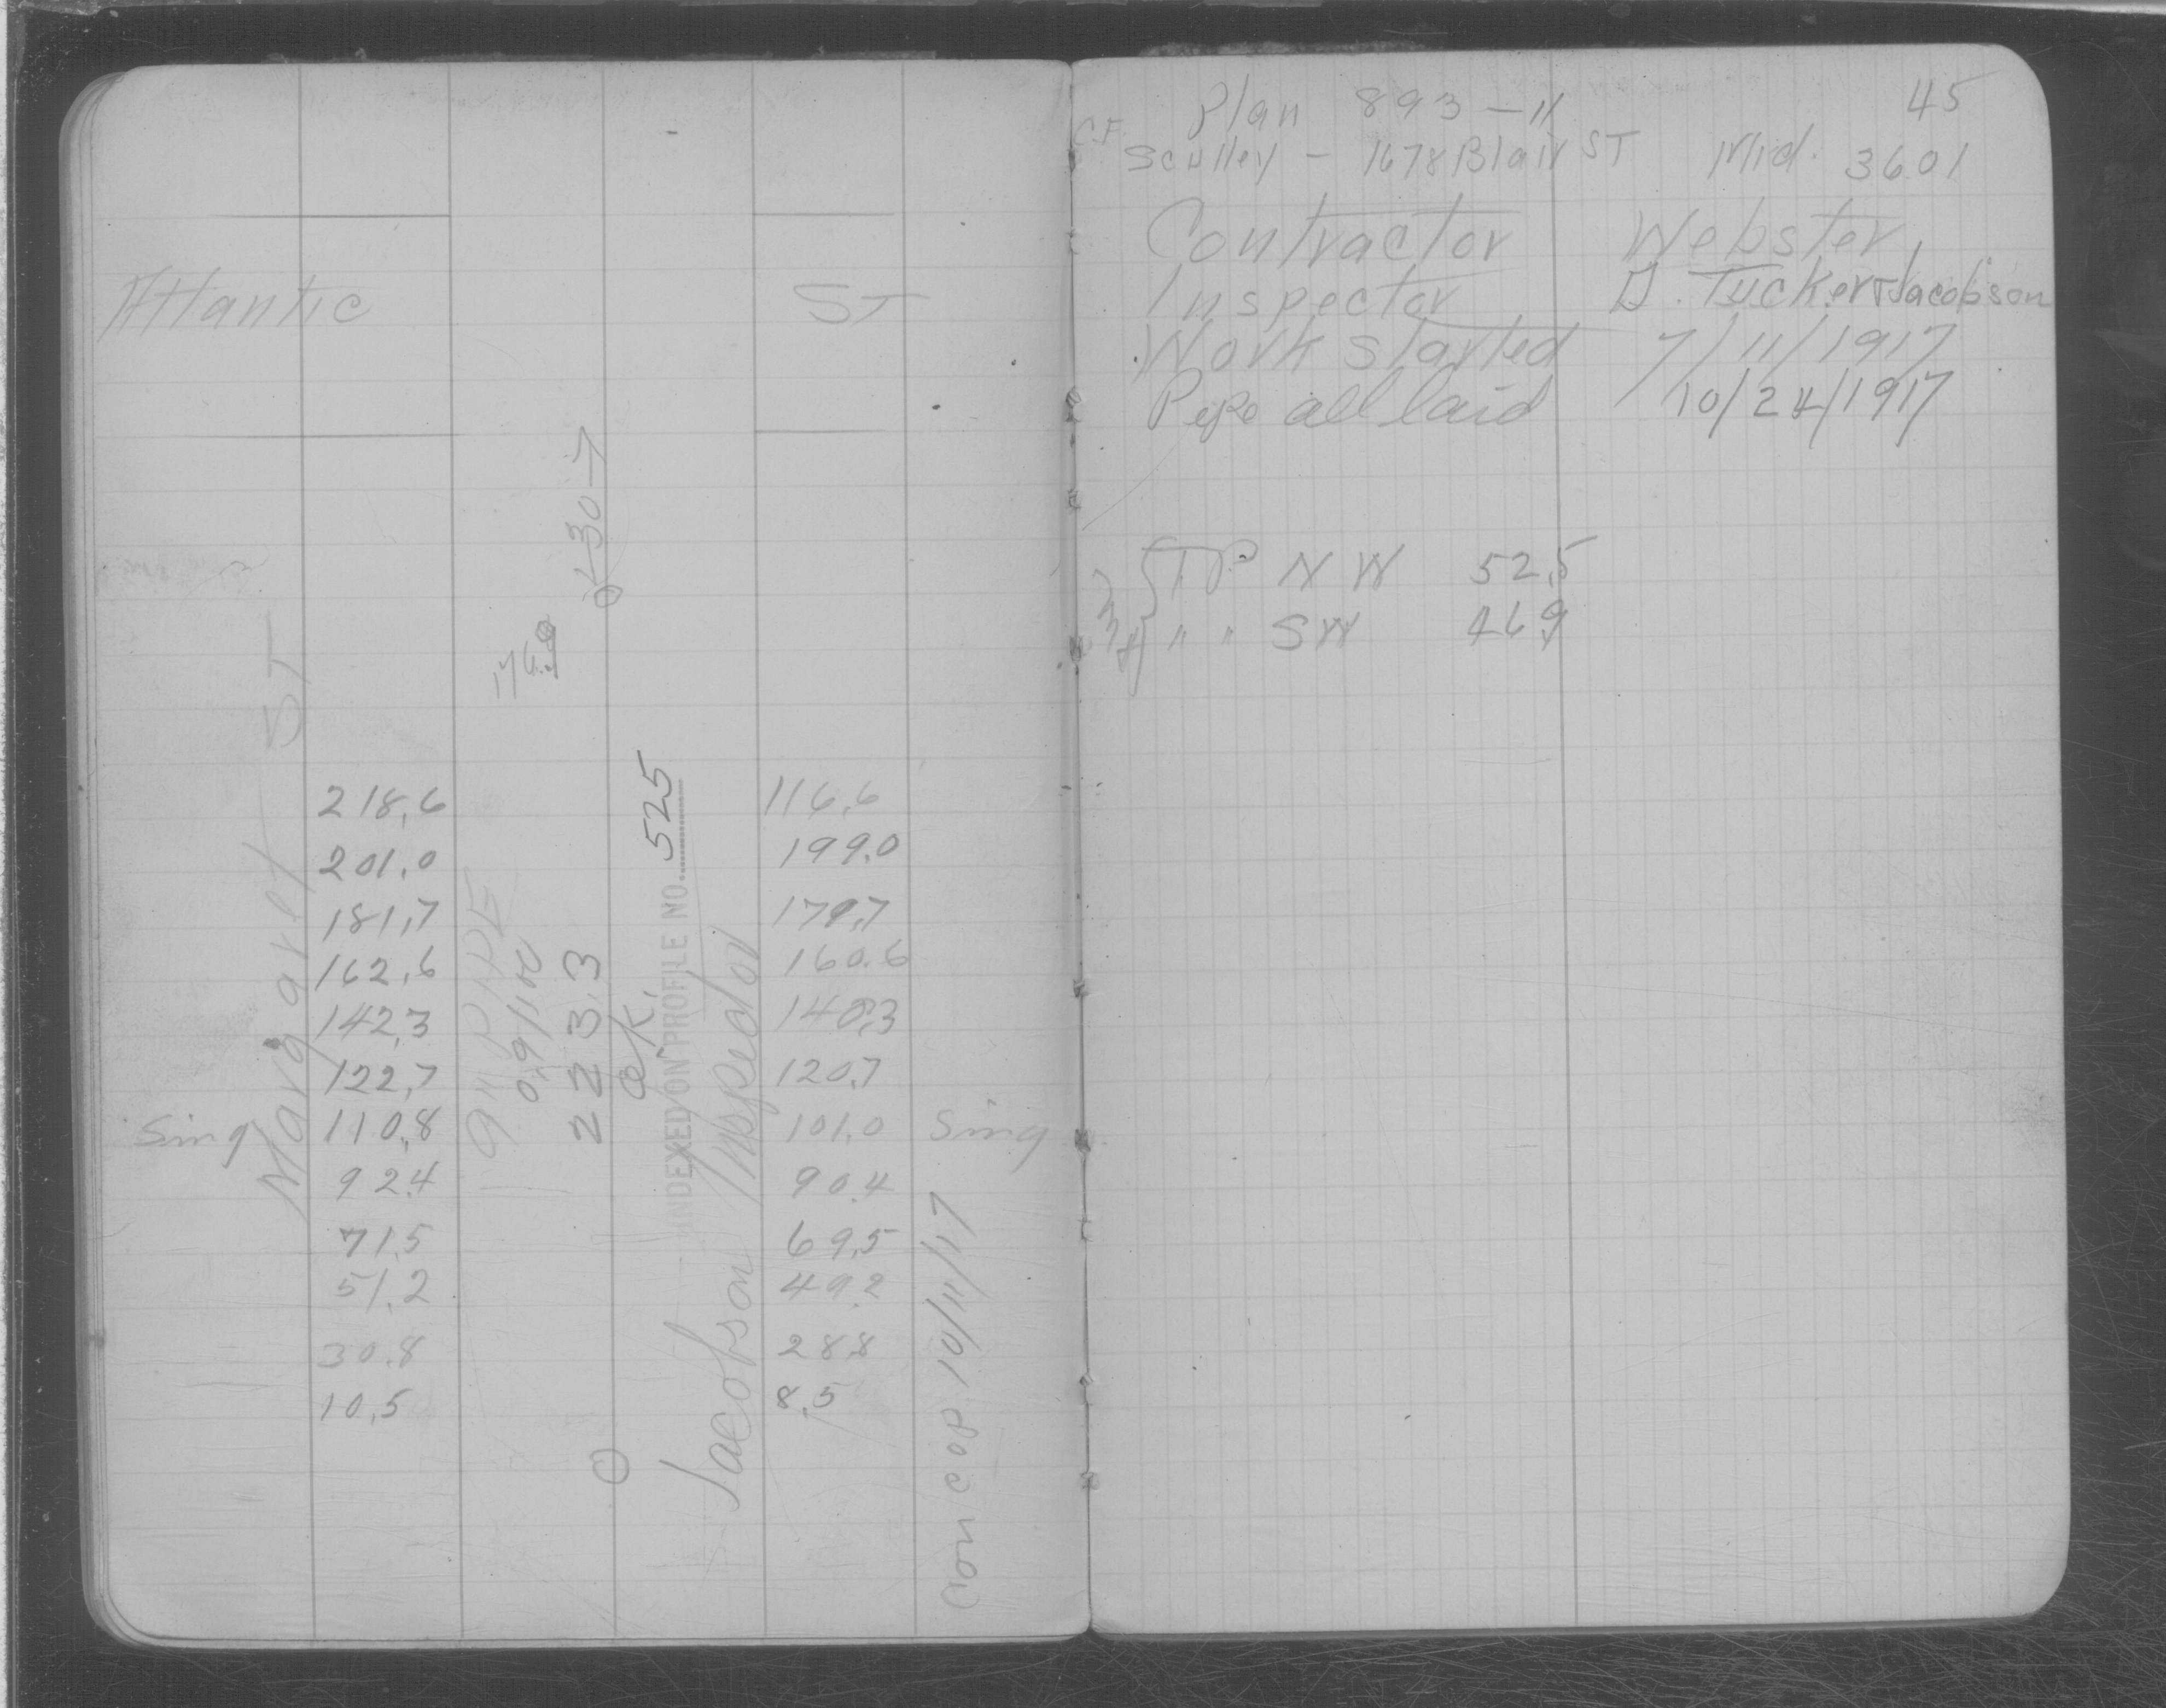 Atlantic ST
Margaret ST
218,6 116,6
201,0 199,0
181,7 179,7
162,6 160.6
142,3 140,3
122,7 120,7
Sing 110,8 101,0 Sing
92.4 90.4
71,5 69,5
51,2 49,2
30,8 28,8
10,5 8,5
9" PIPE
0,9/100
223.3
O.K.
INDEXED ON PROFILE NO. 525
Jacobson Inspector
Con cop 10/11/17
45
Plan 893-11
C.F. Sculley - 1678 Blair ST Mid. 3601
Contractor Webster
Inspector D. Tucker + Jacobson
Work started 7/11/1917
Pipe all laid 10/24/1917
T.P. N W 52,5
" " SW 46,9